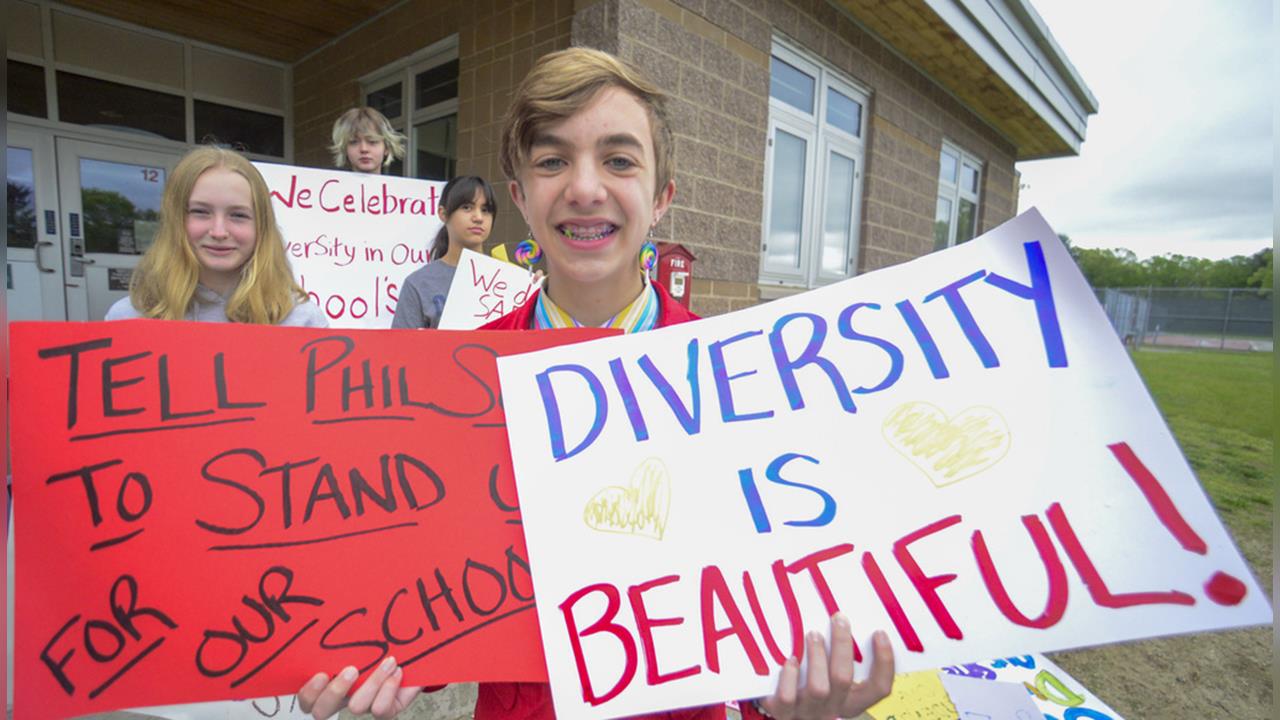 12
We Celebrate
Diversity in Our
School's
We d
SA
FIRE
TELL PHIL S
TO STAND U
FOR OUR SCHOO
DIVERSITY
IS
BEAUTIFUL!